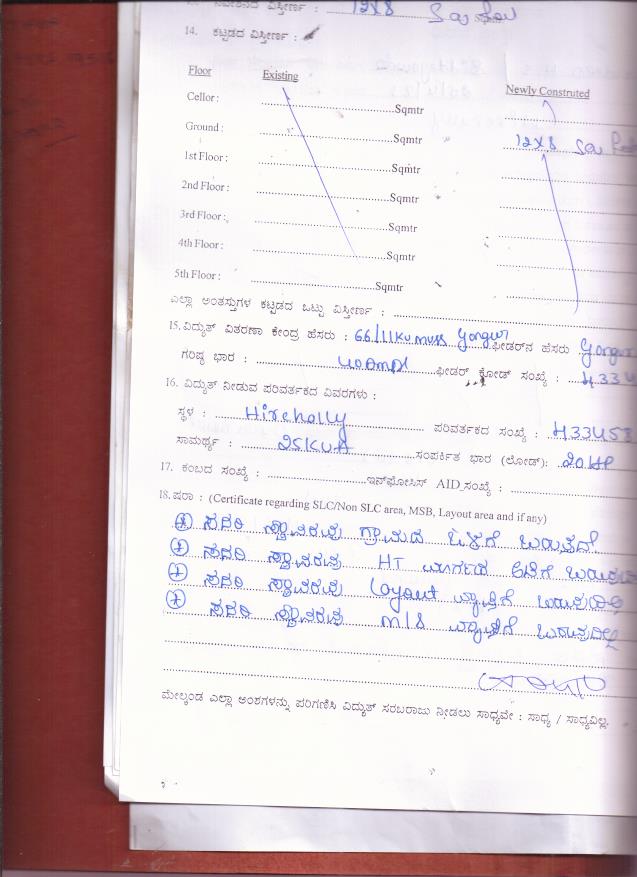 13. ನಿವೇಶನದ ವಿಸ್ತೀರ್ಣ : 12X8
14. ಕಟ್ಟಡದ ವಿಸ್ತೀರ್ಣ :
Floor Existing Newly Construted
Cellor : Sqmtr
Ground : Sqmtr 12X8
1st Floor : Sqmtr
2nd Floor : Sqmtr
3rd Floor : Sqmtr
4th Floor : Sqmtr
5th Floor : Sqmtr
ಎಲ್ಲಾ ಅಂತಸ್ತುಗಳ ಕಟ್ಟಡದ ಒಟ್ಟು ವಿಸ್ತೀರ್ಣ :
15. ವಿದ್ಯುತ್ ವಿತರಣಾ ಕೇಂದ್ರ ಹೆಸರು : 66/11KV MUSS ಫೀಡರ್‌ನ ಹೆಸರು
ಗರಿಷ್ಠ ಭಾರ : 40Amps ಫೀಡರ್ ಕೋಡ್ ಸಂಖ್ಯೆ :
16. ವಿದ್ಯುತ್ ನೀಡುವ ಪರಿವರ್ತಕದ ವಿವರಗಳು :
ಸ್ಥಳ : Hirehally ಪರಿವರ್ತಕದ ಸಂಖ್ಯೆ : 433458
ಸಾಮರ್ಥ್ಯ : 25KVA ಸಂಪರ್ಕಿತ ಭಾರ (ಲೋಡ್): 20HP
17. ಕಂಬದ ಸಂಖ್ಯೆ : ಇನ್‌ಫೋಸಿಸ್ AID ಸಂಖ್ಯೆ :
18. ಷರಾ : (Certificate regarding SLC/Non SLC area, MSB, Layout area and if any)
ಸದರಿ ಸ್ಥಾವರವು ಗ್ರಾಮದ ಒಳಗೆ ಬರುತ್ತದೆ
ಸದರಿ ಸ್ಥಾವರವು HT ಮಾರ್ಗದ ಕೆಳಗೆ
ಸದರಿ ಸ್ಥಾವರವು Layout ವ್ಯಾಪ್ತಿಗೆ ಬರುವುದಿಲ್ಲ
ಸದರಿ ಸ್ಥಾವರವು M/S ವ್ಯಾಪ್ತಿಗೆ ಬರುವುದಿಲ್ಲ
ಮೇಲ್ಕಂಡ ಎಲ್ಲಾ ಅಂಶಗಳನ್ನು ಪರಿಗಣಿಸಿ ವಿದ್ಯುತ್ ಸರಬರಾಜು ನೀಡಲು ಸಾಧ್ಯವೇ : ಸಾಧ್ಯ / ಸಾಧ್ಯವಿಲ್ಲ.